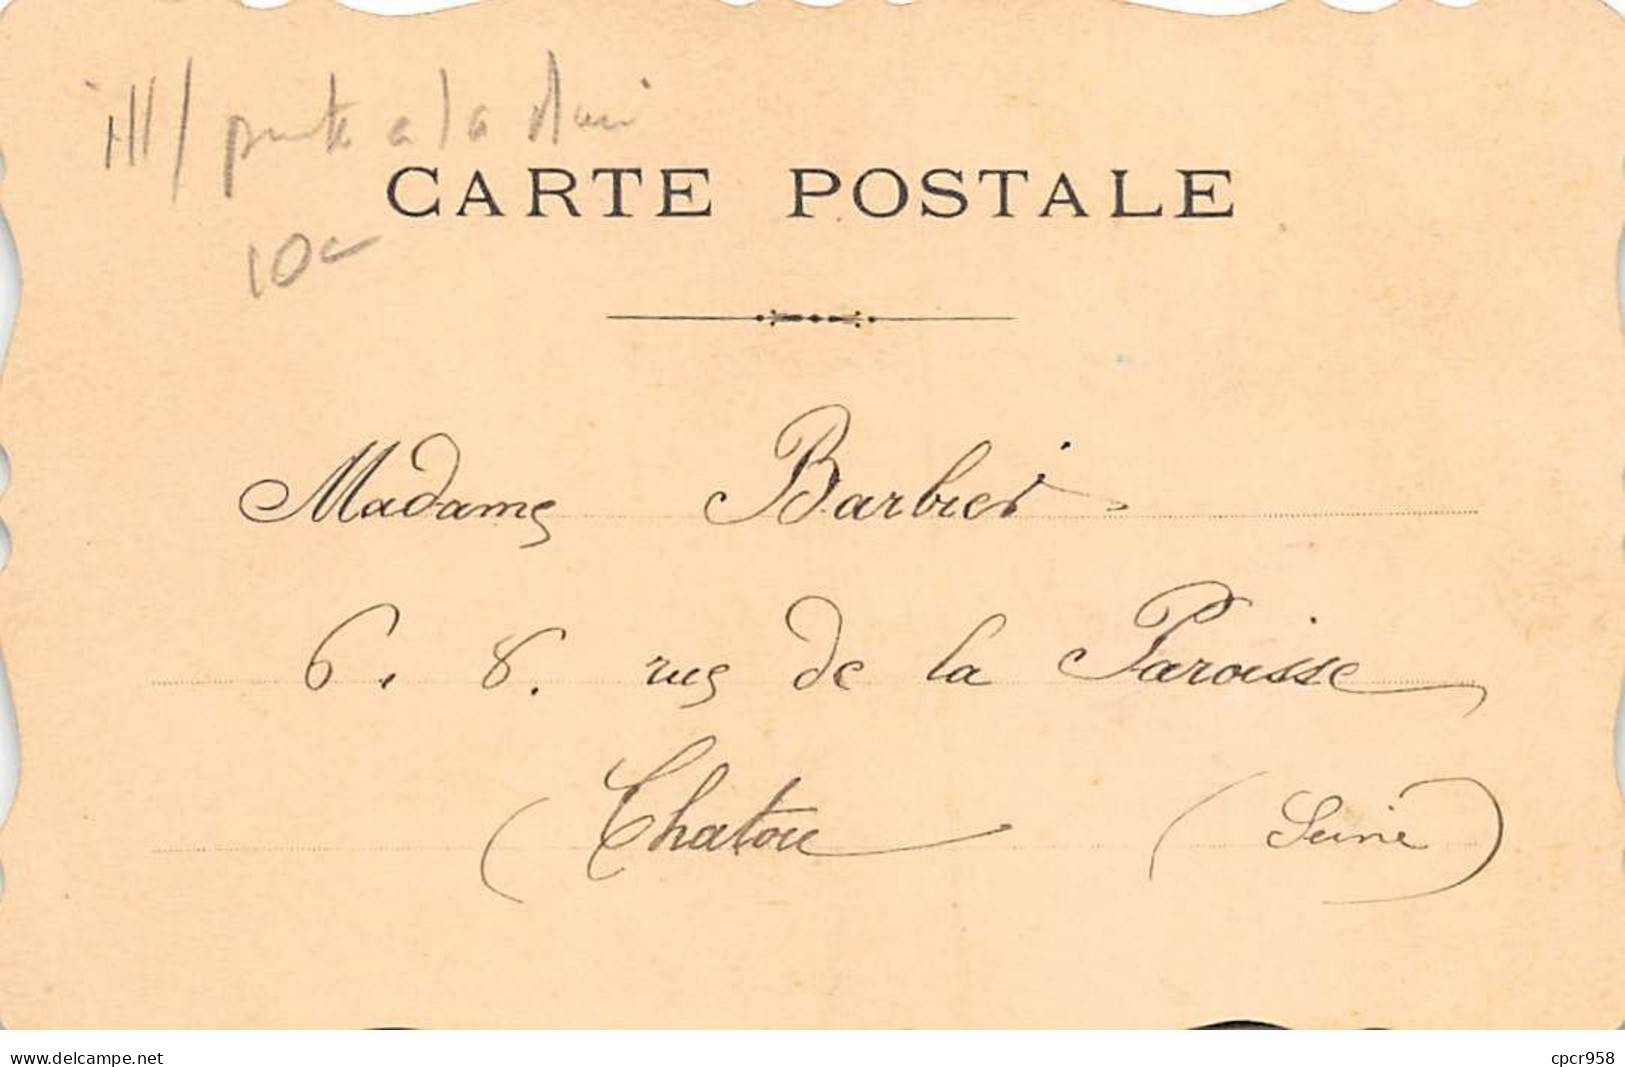 ill/ peinte a la Main
CARTE POSTALE
10
Madame Barbier
6. 8. rue de la Paroisse
Chatou (Seine)
www.delcampe.net cpcr958